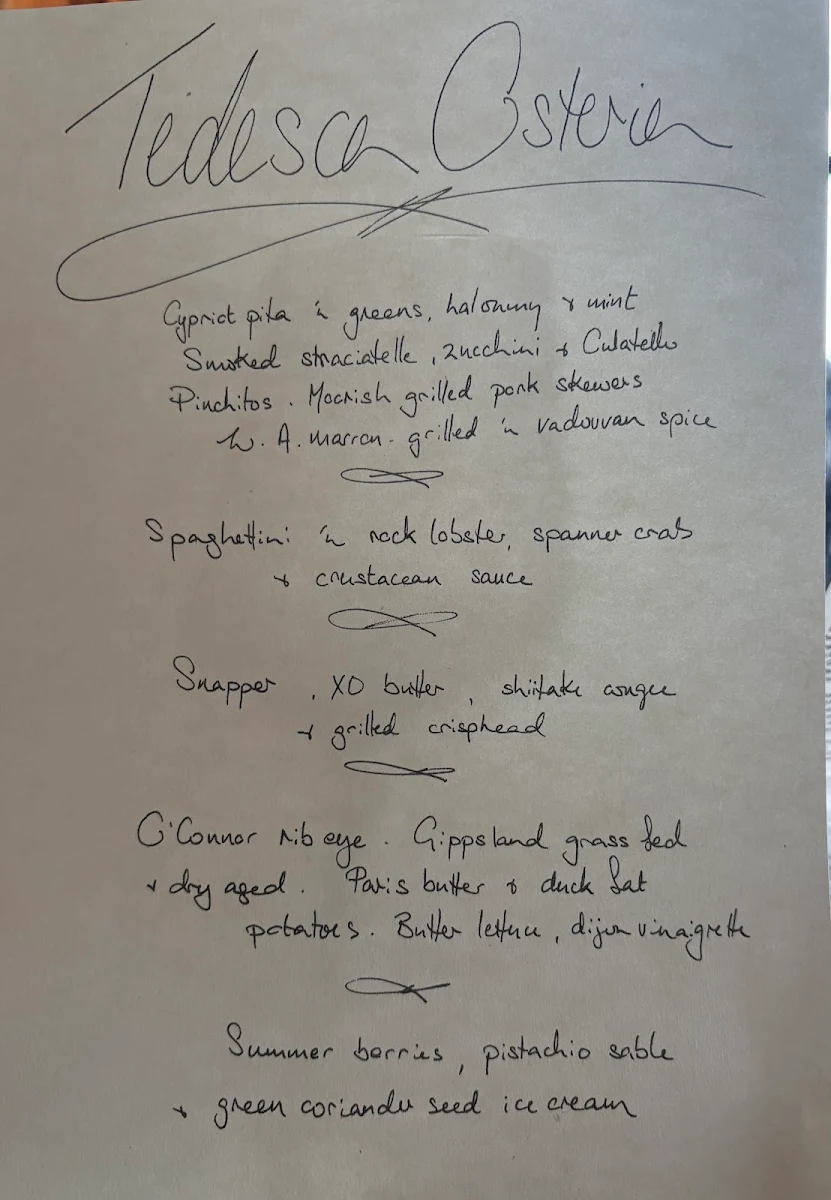 Tedesca Osteria
Cypriot pita 'n greens, haloumy + mint
Smoked straciatelle, zucchini + Culatello
Pinchitos. Moorish grilled pork skewers
W.A. marron - grilled 'n vadouvan spice
Spaghettini 'n rock lobster, spanner crab
+ crustacean sauce
Snapper, XO butter, shiitake congee
+ grilled crisphead
O'Connor rib eye. Gippsland grass fed
+ dry aged. Paris butter + duck fat
potatoes. Butter lettuce, dijon vinaigrette
Summer berries, pistachio sable
+ green coriander seed ice cream